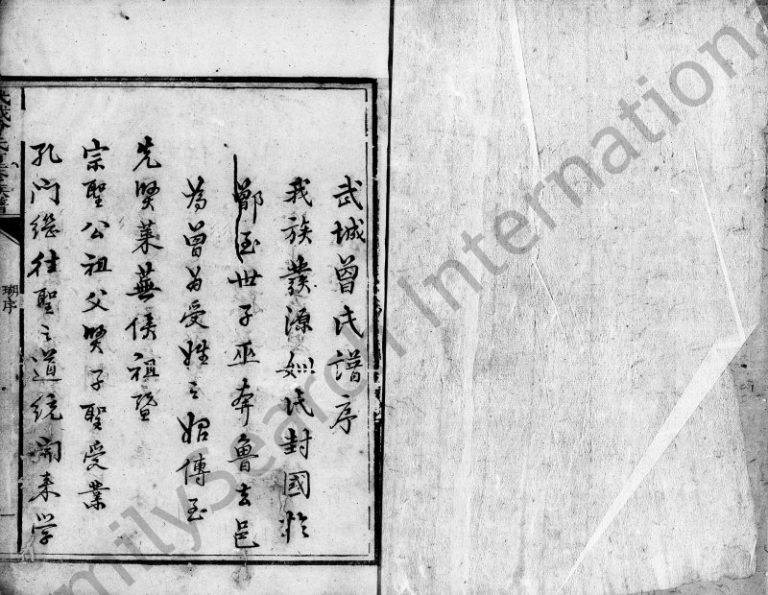 武城曾氏譜序
我族發源姒氏封國於
鄫至世子巫奔魯去邑
為曾為受姓之始傳至
先賢萊蕪侯祖暨
宗聖公祖父賢子聖受業
孔門繼往聖之道統開来学
序
FamilySearch International